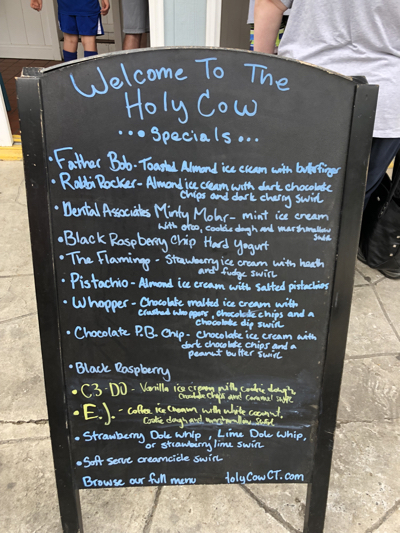 Welcome To The
Holy Cow
... Specials ...
• Father Bob - Toasted Almond ice cream with butterfinger
• Rabbi Rocker - Almond ice cream with dark chocolate
chips and dark cherry swirl
• Dental Associates Minty Mohr - mint ice cream
with oreo, cookie dough and marshmallow
• Black Raspberry Chip Hard Yogurt
• The Flamingo - Strawberry ice cream with heath
and fudge swirl
• Pistachio - Almond ice cream with salted pistachios
• Whopper - Chocolate malted ice cream with
crushed whoppers, chocolate chips and a
chocolate dip swirl
• Chocolate P.B. Chip - chocolate ice cream with
dark chocolate chips and a
peanut butter swirl
• Black Raspberry
• C3-DO - Vanilla ice cream with cookie dough,
chocolate chips and caramel
• E.J. - coffee ice cream with white coconut,
cookie dough and marshmallow swirl
• Strawberry Dole Whip, Lime Dole Whip,
or strawberry lime swirl
• Soft serve creamcicle swirl
Browse our full menu olyCowCT.com